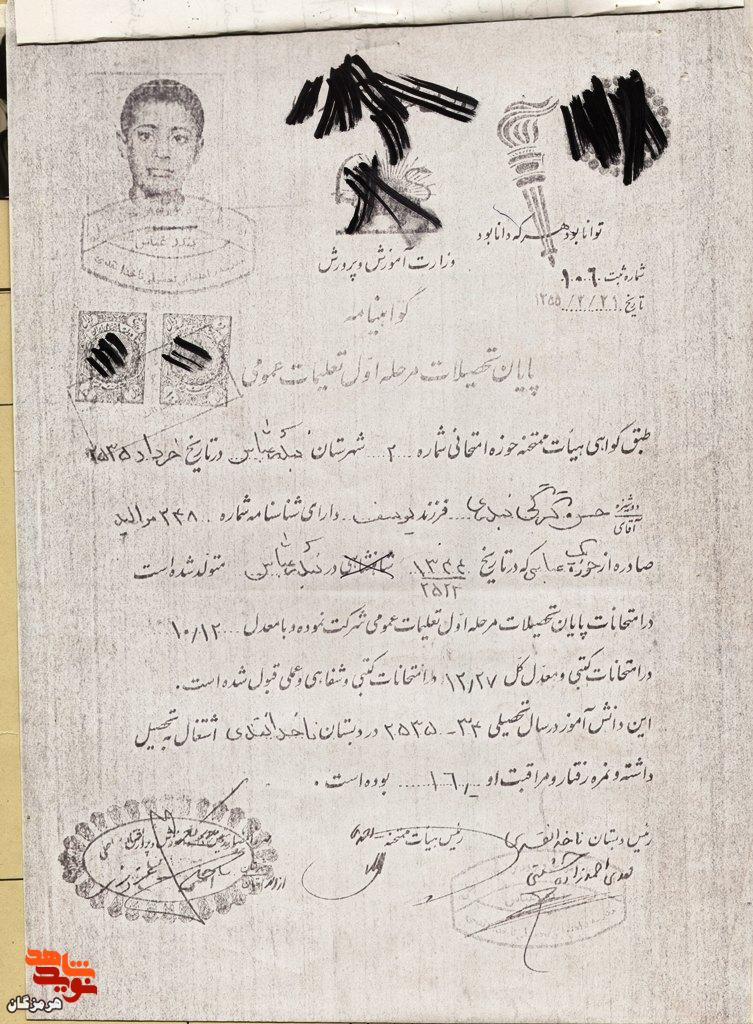 توانا بود هر که دانا بود
وزارت آموزش و پرورش
شماره ثبت ۱۰۰۶
تاریخ ۱۳۵۵/۲/۲۹
گواهینامه
پایان تحصیلات مرحله اوّل تعلیمات عمومی
طبق گواهی هیأت ممتحنه حوزه امتحانی شماره ۲ شهرستان بندرعباس در تاریخ خرداد ۲۵۳۵
دوشیزه
آقای حسن گرگی بندری فرزند یوسف دارای شناسنامه شماره ۲۴۸
صادره از حوزه یک عباسی که در تاریخ ۱۳۴۴ در بندرعباس متولّد شده است
۲۵۲۲
در امتحانات پایان تحصیلات مرحله اوّل تعلیمات عمومی شرکت نموده و با معدل ۱۰/۱۲
در امتحانات کتبی و معدّل کل ۱۲/۲۷ در امتحانات کتبی و شفاهی و عملی قبول شده است.
این دانش آموز در سال تحصیلی ۳۴-۲۵۳۵ در دبستان ناخدا بندی اشتغال به تحصیل
داشته و نمره رفتار و مراقبت او ۱۶ بوده است.
رئیس دبستان رئیس هیأت ممتحنه
نوید شاهد
هرمزگان